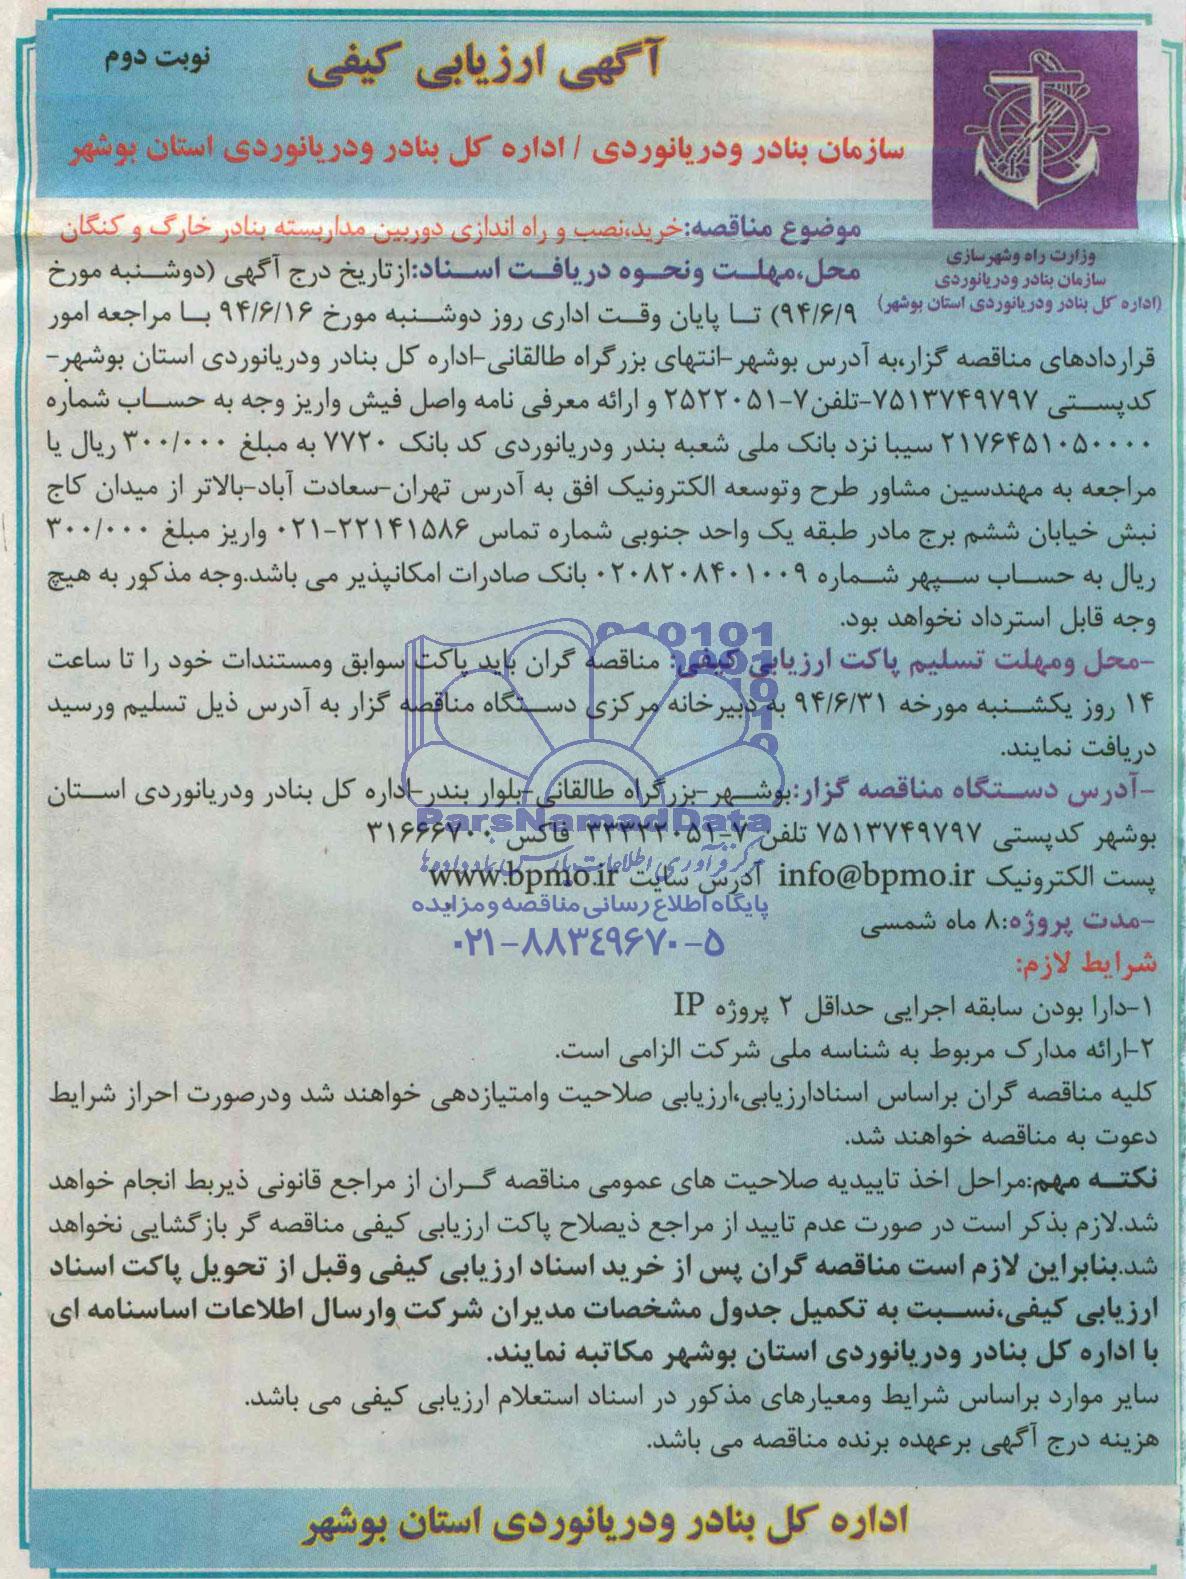 آگهی ارزیابی کیفی
نوبت دوم
سازمان بنادر ودریانوردی / اداره کل بنادر ودریانوردی استان بوشهر
وزارت راه وشهرسازی
سازمان بنادر ودریانوردی
(اداره کل بنادر ودریانوردی استان بوشهر)
موضوع مناقصه:خرید،نصب و راه اندازی دوربین مداربسته بنادر خارگ و کنگان
محل،مهلت ونحوه دریافت اسناد:ازتاریخ درج آگهی (دوشنبه مورخ
۹۴/۶/۹) تا پایان وقت اداری روز دوشنبه مورخ ۹۴/۶/۱۶ با مراجعه امور
قراردادهای مناقصه گزار،به آدرس بوشهر-انتهای بزرگراه طالقانی-اداره کل بنادر ودریانوردی استان بوشهر-
کدپستی ۷۵۱۳۷۴۹۷۹۷-تلفن۷-۲۵۲۲۰۵۱ و ارائه معرفی نامه واصل فیش واریز وجه به حساب شماره
۲۱۷۶۴۵۱۰۵۰۰۰۰ سیبا نزد بانک ملی شعبه بندر ودریانوردی کد بانک ۷۷۲۰ به مبلغ ۳۰۰/۰۰۰ ریال یا
مراجعه به مهندسین مشاور طرح وتوسعه الکترونیک افق به آدرس تهران-سعادت آباد-بالاتر از میدان کاج
نبش خیابان ششم برج مادر طبقه یک واحد جنوبی شماره تماس ۲۲۱۴۱۵۸۶-۰۲۱ واریز مبلغ ۳۰۰/۰۰۰
ریال به حساب سپهر شماره ۰۲۰۸۲۰۸۴۰۱۰۰۹ بانک صادرات امکانپذیر می باشد.وجه مذکور به هیچ
وجه قابل استرداد نخواهد بود.
-محل ومهلت تسلیم پاکت ارزیابی کیفی: مناقصه گران باید پاکت سوابق ومستندات خود را تا ساعت
۱۴ روز یکشنبه مورخه ۹۴/۶/۳۱ به دبیرخانه مرکزی دستگاه مناقصه گزار به آدرس ذیل تسلیم ورسید
دریافت نمایند.
-آدرس دستگاه مناقصه گزار:بوشهر-بزرگراه طالقانی-بلوار بندر-اداره کل بنادر ودریانوردی استان
بوشهر کدپستی ۷۵۱۳۷۴۹۷۹۷ تلفن ۷-۳۳۳۲۲۰۵۱ فاکس ۳۱۶۶۶۷۰۰
ParsNamadData
مرکز فرآوری اطلاعات پارس نماد داده ها
پست الکترونیک info@bpmo.ir آدرس سایت www.bpmo.ir
پایگاه اطلاع رسانی مناقصه و مزایده
-مدت پروژه:۸ ماه شمسی
۰۲۱-۸۸۳۴۹۶۷۰-۵
شرایط لازم:
۱-دارا بودن سابقه اجرایی حداقل ۲ پروژه IP
۲-ارائه مدارک مربوط به شناسه ملی شرکت الزامی است.
کلیه مناقصه گران براساس اسنادارزیابی،ارزیابی صلاحیت وامتیازدهی خواهند شد ودرصورت احراز شرایط
دعوت به مناقصه خواهند شد.
نکته مهم:مراحل اخذ تاییدیه صلاحیت های عمومی مناقصه گران از مراجع قانونی ذیربط انجام خواهد
شد.لازم بذکر است در صورت عدم تایید از مراجع ذیصلاح پاکت ارزیابی کیفی مناقصه گر بازگشایی نخواهد
شد.بنابراین لازم است مناقصه گران پس از خرید اسناد ارزیابی کیفی وقبل از تحویل پاکت اسناد
ارزیابی کیفی،نسبت به تکمیل جدول مشخصات مدیران شرکت وارسال اطلاعات اساسنامه ای
با اداره کل بنادر ودریانوردی استان بوشهر مکاتبه نمایند.
سایر موارد براساس شرایط ومعیارهای مذکور در اسناد استعلام ارزیابی کیفی می باشد.
هزینه درج آگهی برعهده برنده مناقصه می باشد.
اداره کل بنادر ودریانوردی استان بوشهر